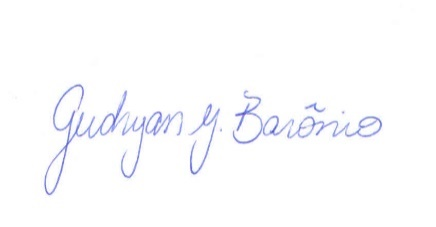 Gudryan J. Barônio